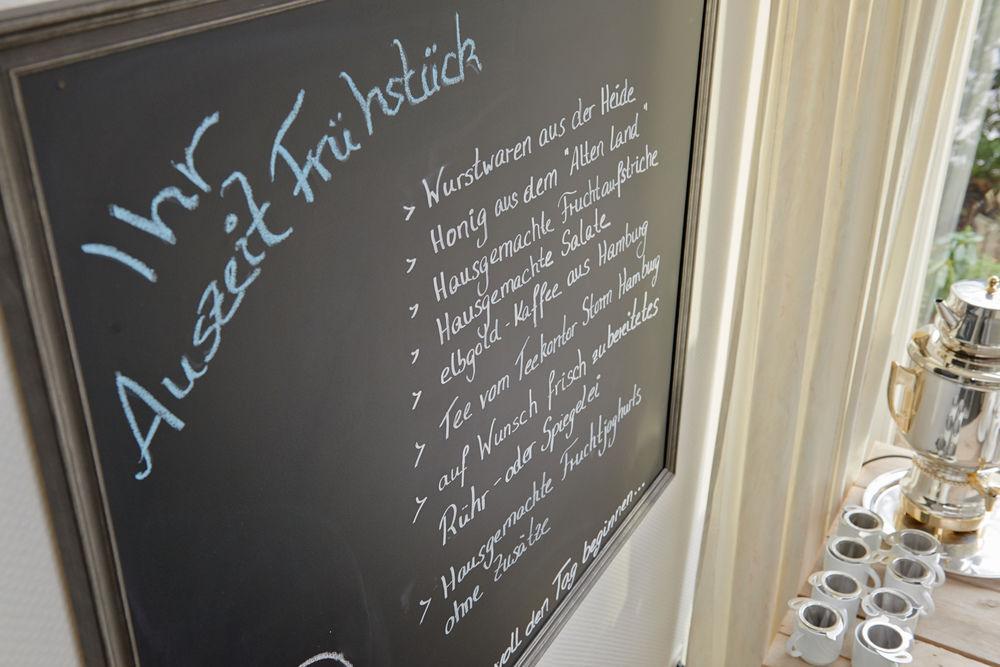 Ihr
Auszeit Frühstück
> Wurstwaren aus der Heide
> Honig aus dem "Alten Land"
> Hausgemachte Fruchtaufstriche
> Hausgemachte Salate
> elbgold-Kaffee aus Hamburg
> Tee vom Teekontor Storm Hamburg
> auf Wunsch frisch zubereitetes
Rühr-oder Spiegelei
> Hausgemachte Fruchtjoghurts
ohne Zusätze
den Tag beginnen...